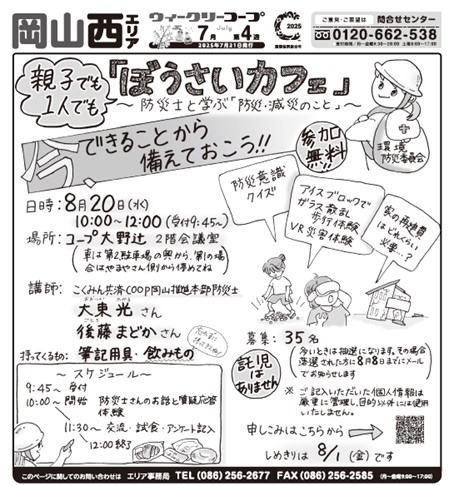 岡山西エリア
ウィークリーコープ
7月 July 第4週
2025年7月21日発行
2025
国際協同組合年
ご意見・ご要望は 問合せセンター
0120-662-538
親子でも
1人でも
「ぼうさいカフェ」
～防災士と学ぶ「防災・減災のこと」～
今できることから
備えておこう!!
参加
無料!!
環境
防災委員会
日時:8月20日(水)
10:00~12:00(受付9:45~)
場所:コープ大野辻 2階会議室
防災意識
クイズ
アイスブロックで
ガラス散乱
歩行体験
VR災害体験
家の再建費
はどれくらい
必要…?
講師:こくみん共済COOP岡山推進本部防災士
大東 光さん
後藤 まどかさん
持ってくるもの:筆記用具・飲みもの
募集:35名
多いときは抽選になります。その場合
落選された方に8月8日までにメール
でお知らせします
託児は
ありません
※ご記入いただいた個人情報は
厳重に管理し、目的以外には使用
いたしません。
～スケジュール～
9:45~ 受付
10:00~ 開始 防災士さんのお話と質疑応答
体験
11:30~ 交流・試食・アンケート記入
12:00終了
申しこみはこちらから
しめきりは 8/1(金)です
このページに関してのお問い合わせは エリア事務局 TEL(086)256-2677 FAX(086)256-2585 (月~金曜9:00~17:00)